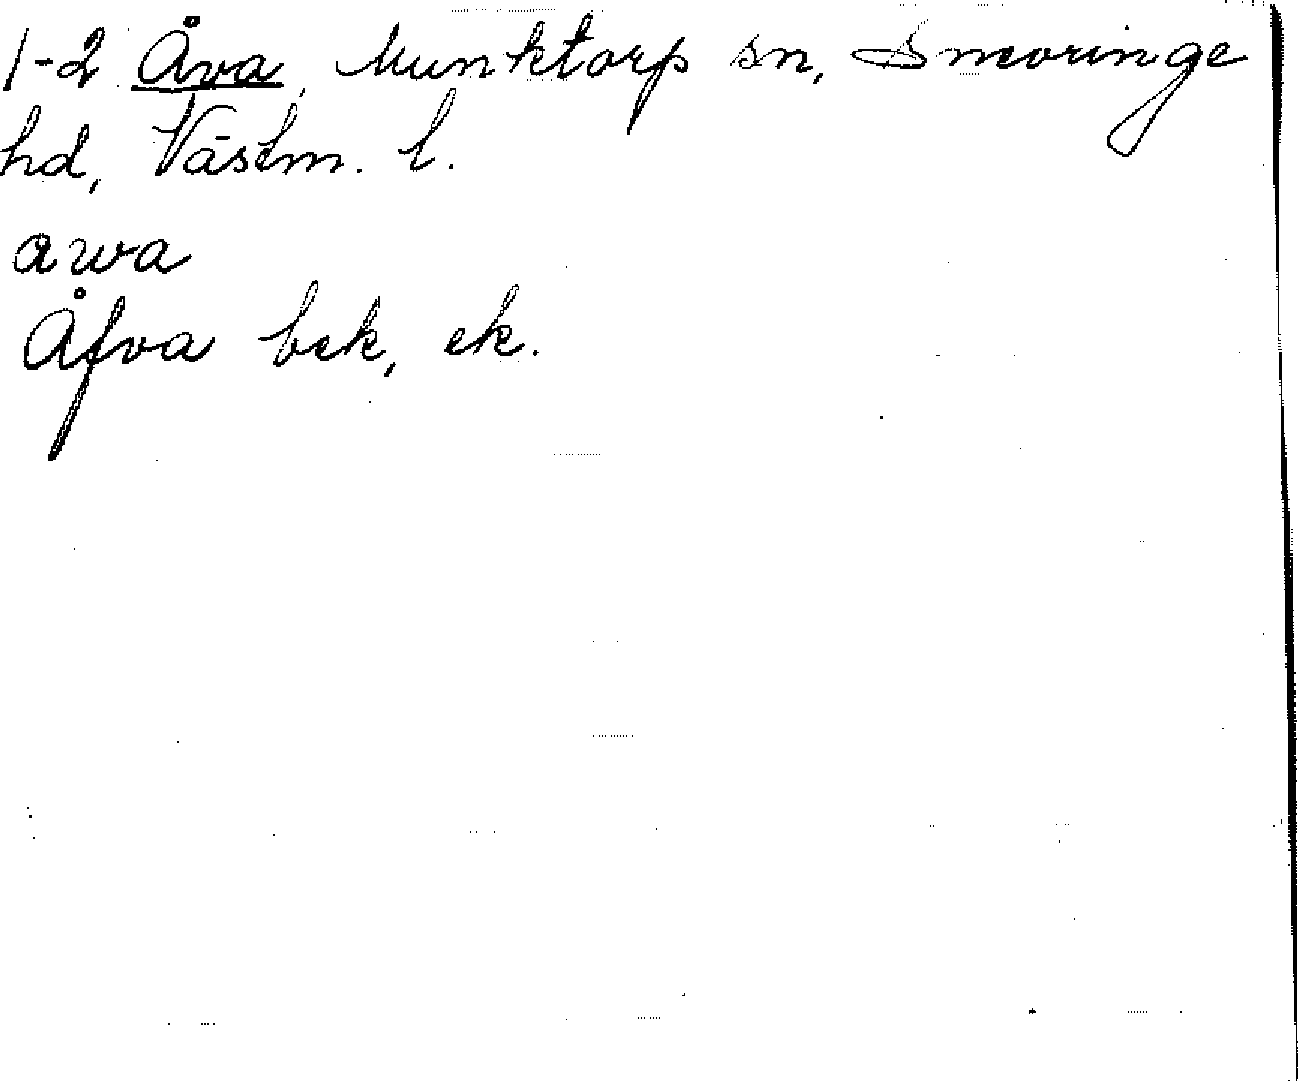 1-2 Åva, Munktorp sn, Snevringe
hd, Västm. l.
awa
Åfva bek, ek.